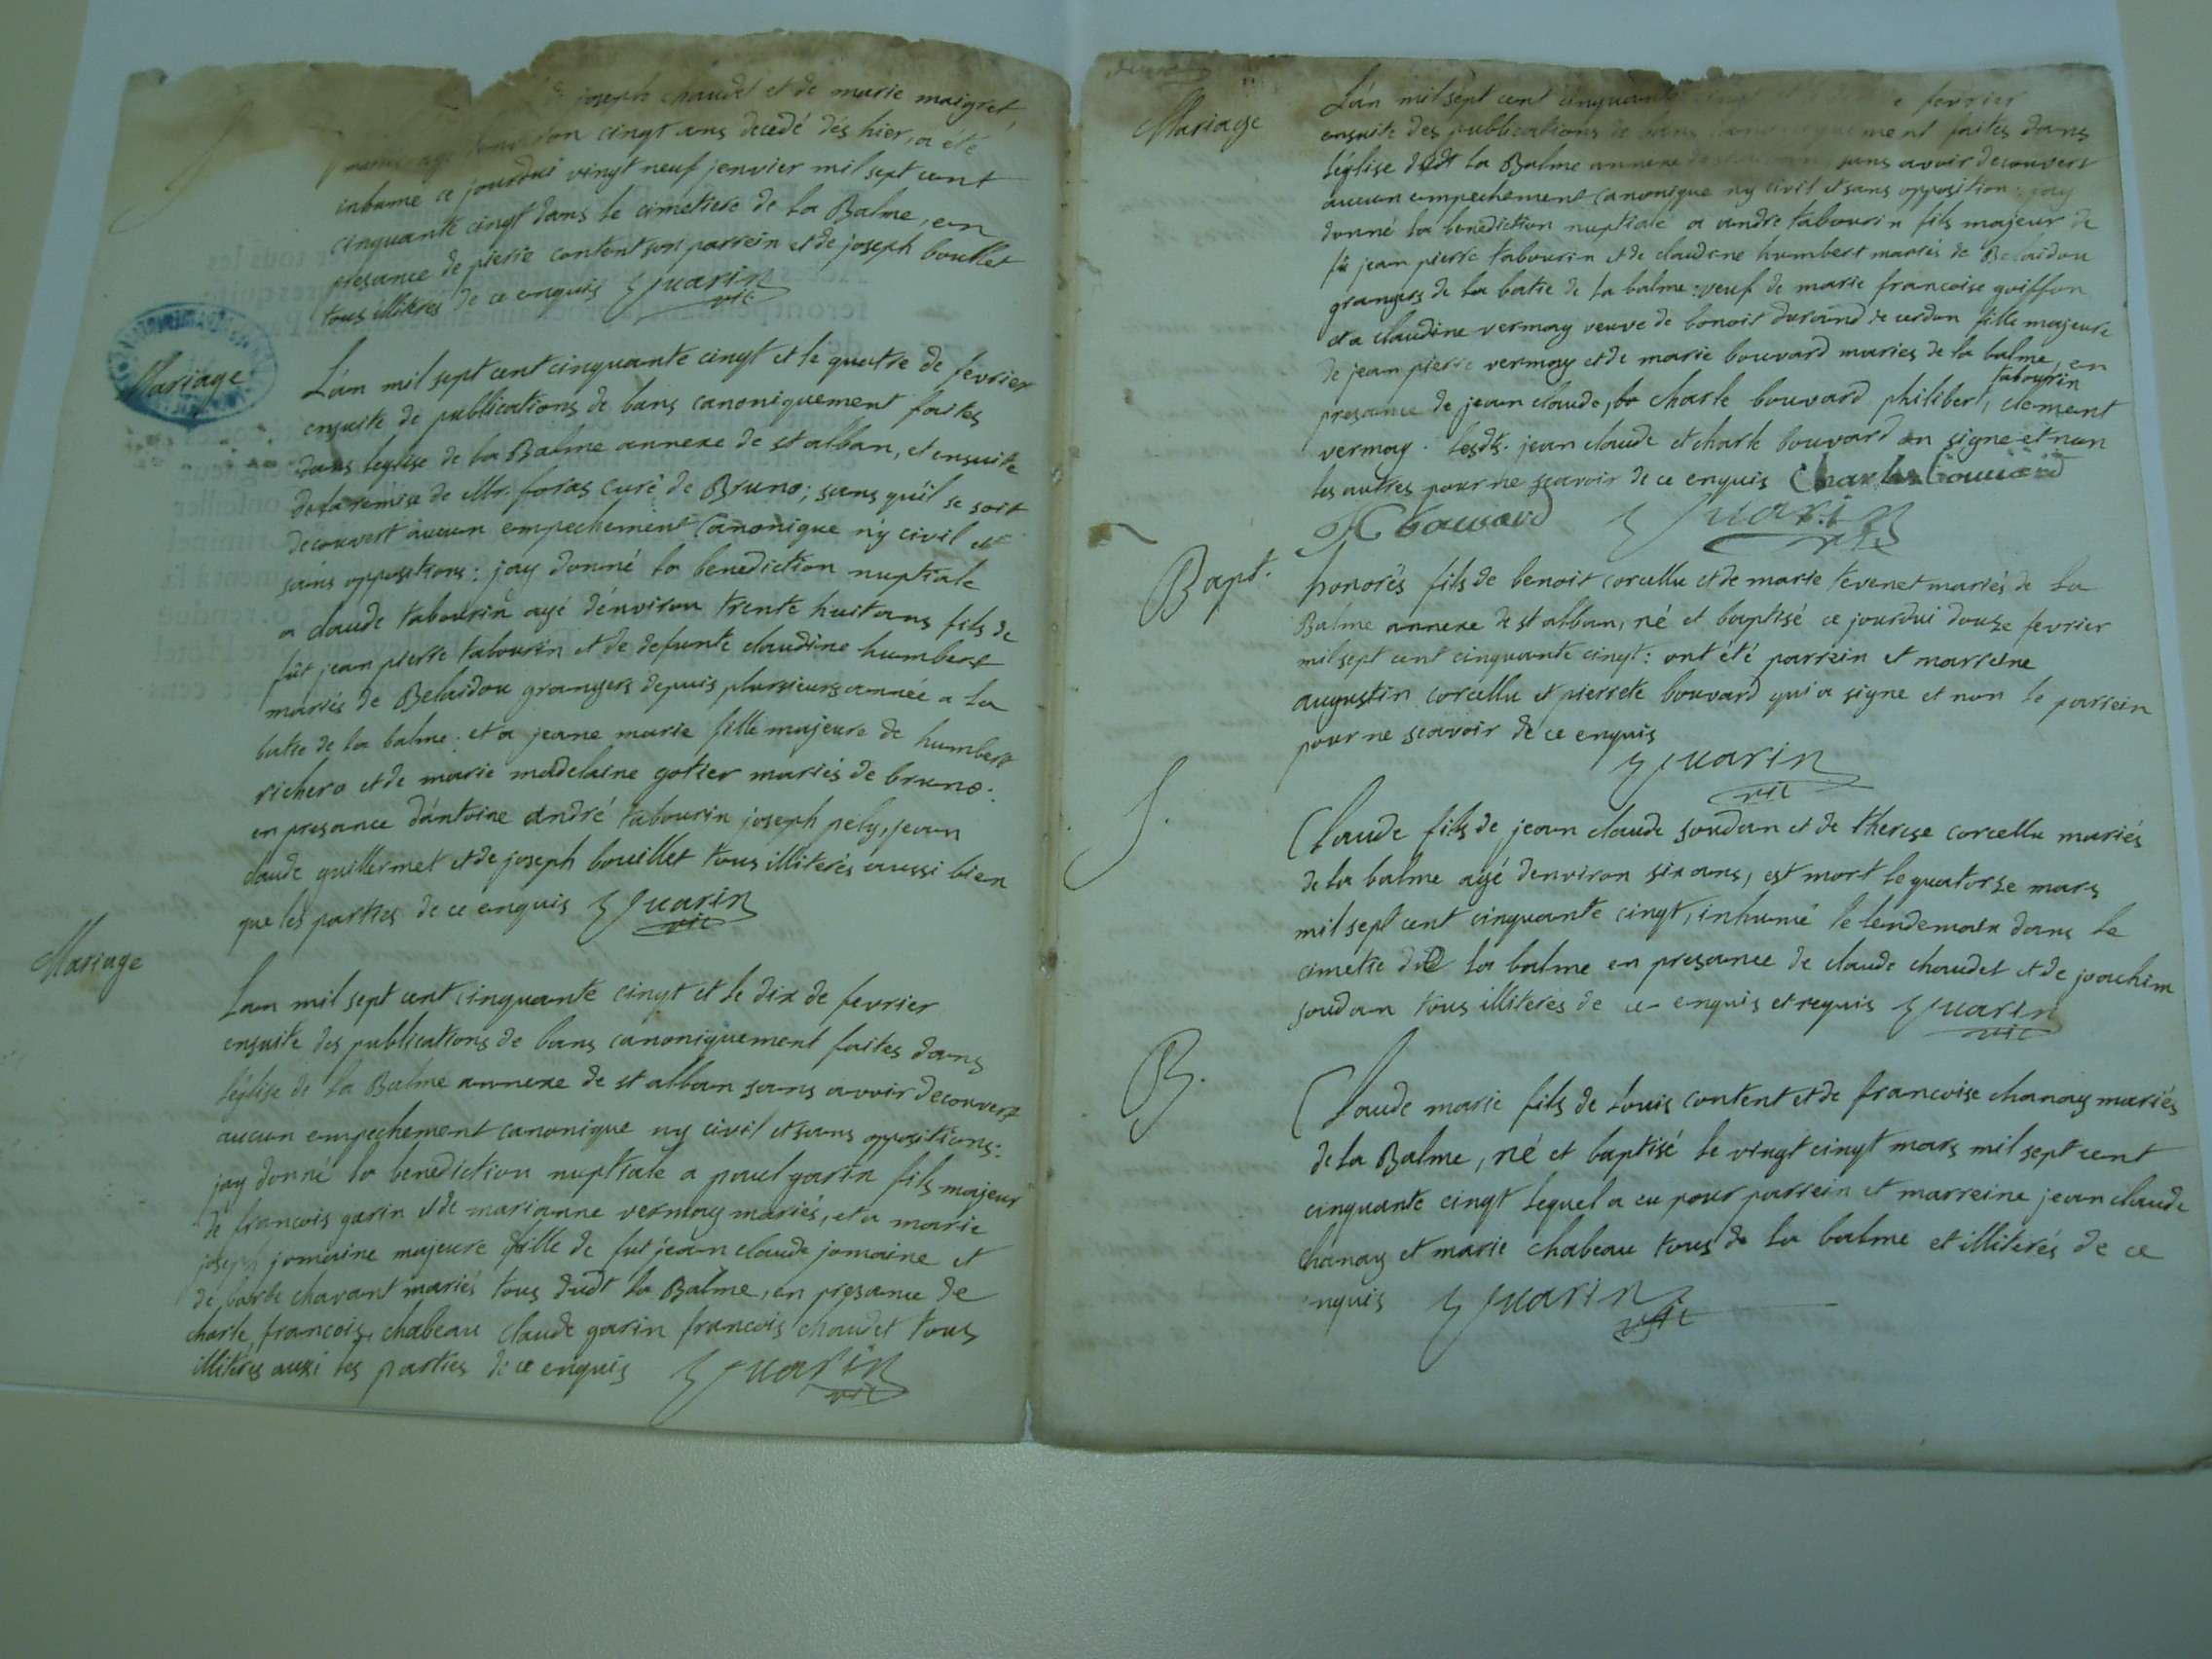 joseph chaudet et de marie maigret,
cinqt ans decedé dés hier, a été
inhumé ce jourdui vingt neuf jenvier mil sept cent
cinquante cinqt dans le cimetiere de la Balme, en
presance de pierre content son parrein et de joseph boullet
tous illiterés de ce enquis
vic
Mariage
L'an mil sept cent cinquante cinqt et le quatre de fevrier
ensuite de publications de bans canoniquement faites
dans leglise de la Balme annexe de st alban, et ensuite
de la remise de Mr. foras curé de Bruno; sans qu'il se soit
decouvert aucun empechement canonique n'y civil et
sans oppositions: jay donné la benediction nuptiale
a claude tabourin agé d'environ trente huit ans fils de
fût jean pierre tabourin et de defunte claudine humbert
mariés de Belaidou grangers depuis plursieurs année a la
batie de la balme: et a jeane marie fille majeure de humbert
richero et de marie madelaine gotier mariés de bruno:
en presance d'antoine andré tabourin joseph pely, jean
claude guillermet et de joseph bouillet tous illiterés aussi bien
que les parties de ce enquis
vic
Mariage
Lan mil sept cent cinquante cinqt et le dix de fevrier
ensuite des publications de bans canoniquement faites dans
l'église de la Balme annexe de st alban sans avoir decouvert
aucun empechement canonique ny civil et sans oppositions:
jay donné la benediction nuptiale a paul garin fils majeur
de francois garin et de marianne vermay mariés, et a marie
joseph jomaine majeure fille de fut jean claude jomaine et
de barbe chavant mariés tous dudt la Balme, en presance de
charle francois chabeau claude garin francois chaudet tous
illiterés aussi les parties de ce enquis
vic
Mariage
L'an mil sept cent cinquante fevrier
ensuite des publications de bans canoniquement faites dans
l'église dudt la Balme annexe sans avoir decouvert
aucun empechement canonique ny civil et sans opposition: jay
donné la benediction nuptiale a andre tabourin fils majeur de
fû jean pierre tabourin et de claudine humbert mariés de Belaidou
grangers de la batie de la balme: veuf de marie francoise goiffon
et a claudine vermay veuve de benoit durand de cerdon fille majeure
de jean pierre vermay et de marie bouvard maries de la balme, en
presance de jean claude, charle bouvard philibert, tabourin clement
vermay. lesdts. jean claude et charle bouvard on signe et non
les autres pour ne scavoir de ce enquis Charle bouvard
JC bouvard
vic
Bapt.
honorés fils de benoit corcellu et de marie tevenet mariés de la
Balme annexe de st alban, né et baptisé ce jourdui douze fevrier
mil sept cent cinquante cinqt: ont été parrein et marreine
augustin corcellu et pierrete bouvard qui a signe et non le parrein
pour ne scavoir de ce enquis
vic
S.
Claude fils de jean claude soudan et de therese corcellu mariés
de la balme agé denviron six ans, est mort le quatorze mars
mil sept cent cinquante cinqt, inhumé le lendemain dans le
cimetie de la balme en presance de claude chaudet et de joachim
soudan tous illiterés de ce enquis et requis
vic
B.
Claude marie fils de Louis content et de francoise chanay mariés
de la Balme, né et baptisé le vingt cinqt mars mil sept cent
cinquante cinqt lequel a eu pour parrein et marreine jean claude
chanay et marie chabeau tous de la balme et illiterés de ce
enquis
vic